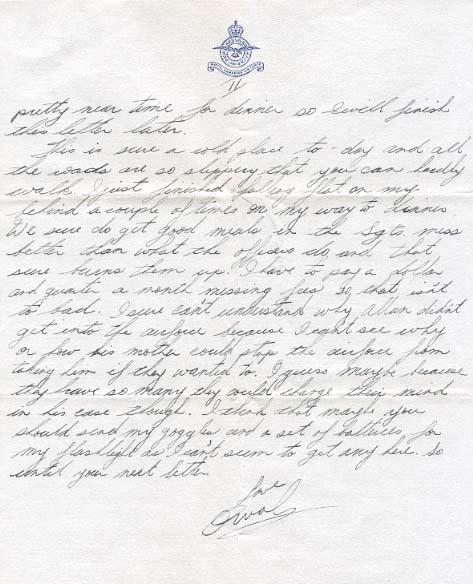 II
pretty near time for dinner so I will finish
this letter later.
This is sure a cold place to-day and all
the roads are so slippery that you can hardly
walk. I just finished falling flat on my
behind a couple of times on my way to dinner
We sure do get good meals in the Sgts. mess
better than what the officers do, and that
sure burns them up. I have to pay a dollar
and quarter a month messing fees so, that isn't
to bad. I sure can't understand why Allan didn't
get into the airforce because I can't see why
or how his mother could stop the airforce from
taking him if they wanted to. I guess maybe because
they have so many they could change their mind
in his case though. I think that maybe you
should send my goggles and a set of batteries for
my flashlight as I can't seem to get any here. So
until your next letter.
Love